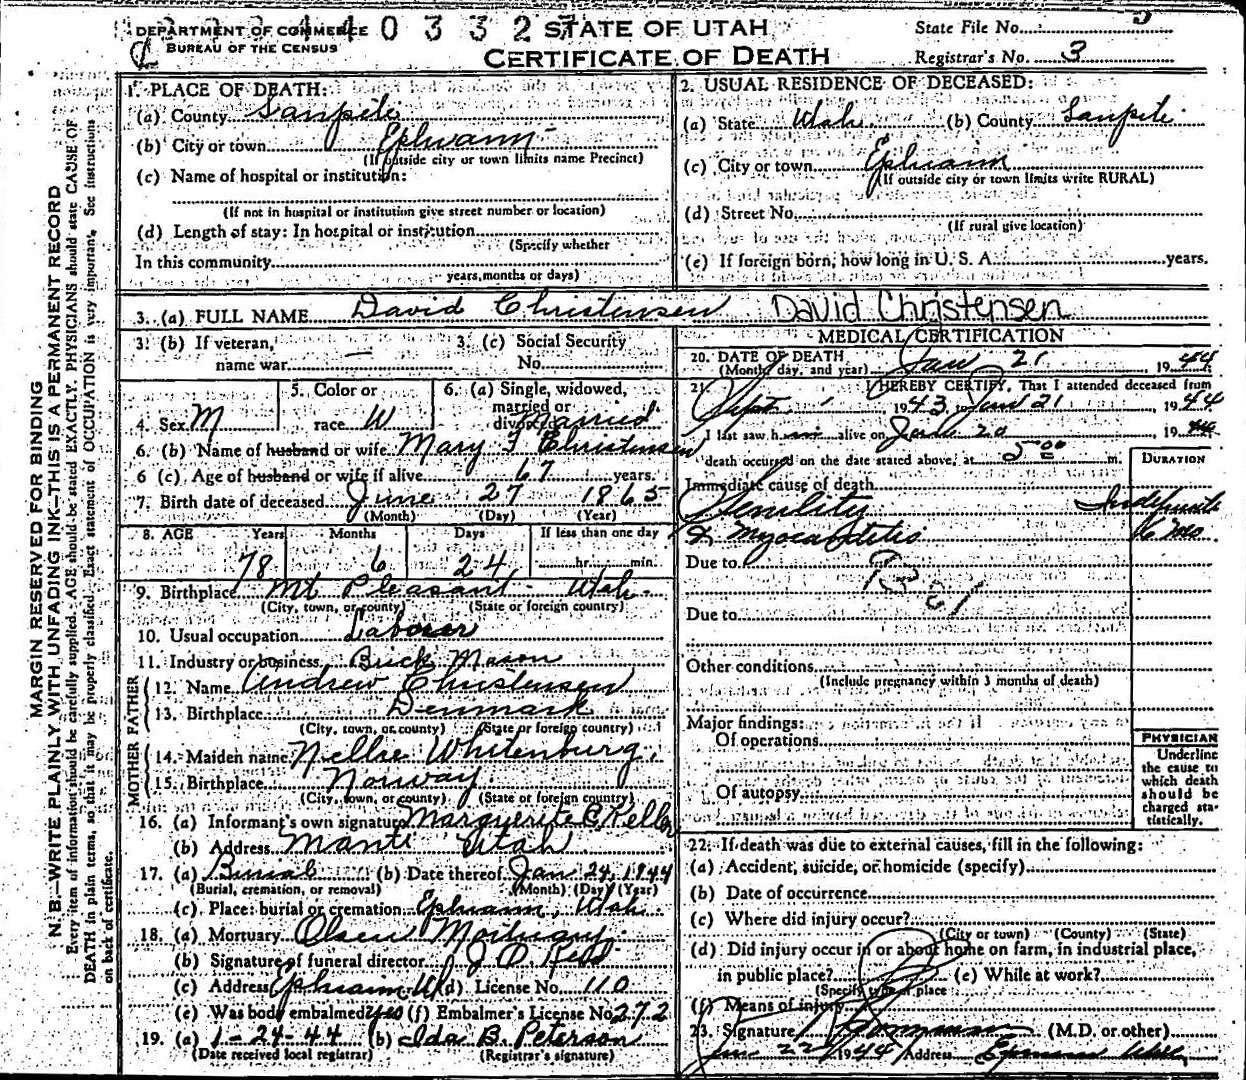 DEPARTMENT OF COMMERCE
BUREAU OF THE CENSUS
4 0 3 3 2
STATE OF UTAH
CERTIFICATE OF DEATH
State File No.
Registrar's No. 3
MARGIN RESERVED FOR BINDING
N. B.—WRITE PLAINLY WITH UNFADING INK—THIS IS A PERMANENT RECORD
Every item of information should be carefully supplied. AGE should be stated EXACTLY. PHYSICIANS should state CAUSE OF
DEATH in plain terms, so that it may be properly classified. Exact statement of OCCUPATION is very important. See instructions
on back of certificate.
1. PLACE OF DEATH:
(a) County Sanpete
(b) City or town Ephraim
(If outside city or town limits name Precinct)
(c) Name of hospital or institution:
(If not in hospital or institution give street number or location)
(d) Length of stay: In hospital or institution
(Specify whether
In this community
years, months or days)
2. USUAL RESIDENCE OF DECEASED:
(a) State Utah (b) County Sanpete
(c) City or town Ephraim
(If outside city or town limits write RURAL)
(d) Street No.
(If rural give location)
(e) If foreign born, how long in U. S. A. years.
3. (a) FULL NAME David Christensen David Christensen
3. (b) If veteran,
name war —
3. (c) Social Security
No.
4. Sex M
5. Color or
race W
6. (a) Single, widowed,
married or
divorced Married
6. (b) Name of husband or wife Mary F Christensen
6 (c) Age of husband or wife if alive 67 years.
7. Birth date of deceased June 27 1865
(Month) (Day) (Year)
8. AGE Years Months Days If less than one day
78 6 24 hr. min.
9. Birthplace Mt Pleasant - Utah.
(City, town, or county) (State or foreign country)
10. Usual occupation Laborer
11. Industry or business Brick Mason
FATHER
12. Name Andrew Christensen
13. Birthplace Denmark
(City, town, or county) (State or foreign country)
MOTHER
14. Maiden name Nellie Whitenburg
15. Birthplace Norway
(City, town, or county) (State or foreign country)
16. (a) Informant's own signature Marguerite C. Keller
(b) Address Manti Utah
17. (a) Burial (b) Date thereof Jan 24, 1944
(Burial, cremation, or removal) (Month) (Day) (Year)
(c) Place: burial or cremation Ephraim, Utah
18. (a) Mortuary Olsen Mortuary
(b) Signature of funeral director
(c) Address Ephraim U (d) License No. 110
(e) Was body embalmed yes (f) Embalmer's License No 272
19. (a) 1-24-44 (b) Ida B. Peterson
(Date received local registrar) (Registrar's signature)
MEDICAL CERTIFICATION
20. DATE OF DEATH
(Month, day, and year) Jan 21 1944
21. I HEREBY CERTIFY, That I attended deceased from
Sept. 1943, to Jan 21, 1944
I last saw h alive on Jan 20 1944
death occurred on the date stated above, at 5 00 m.
DURATION
Immediate cause of death
Senility Indefinite
& Myocarditis 6 mo
Due to
Due to
Other conditions
(Include pregnancy within 3 months of death)
Major findings:
Of operations
Of autopsy
PHYSICIAN
Underline
the cause to
which death
should be
charged sta-
tistically.
22. If death was due to external causes, fill in the following:
(a) Accident, suicide, or homicide (specify)
(b) Date of occurrence
(c) Where did injury occur?
(City or town) (County) (State)
(d) Did injury occur in or about home on farm, in industrial place,
in public place? (e) While at work?
(Specify type of place
(f) Means of injury
23. Signature (M.D. or other)
Jan 22 1944 Address Ephraim Utah